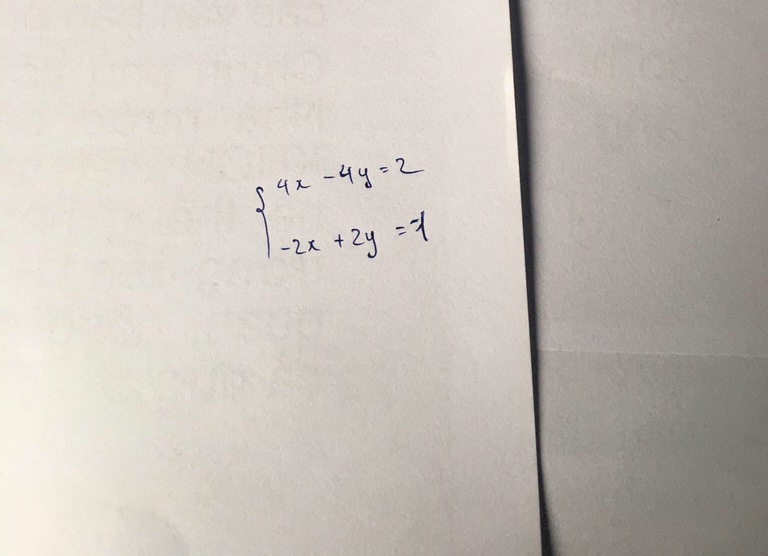 4x - 4y = 2
-2x + 2y = -1